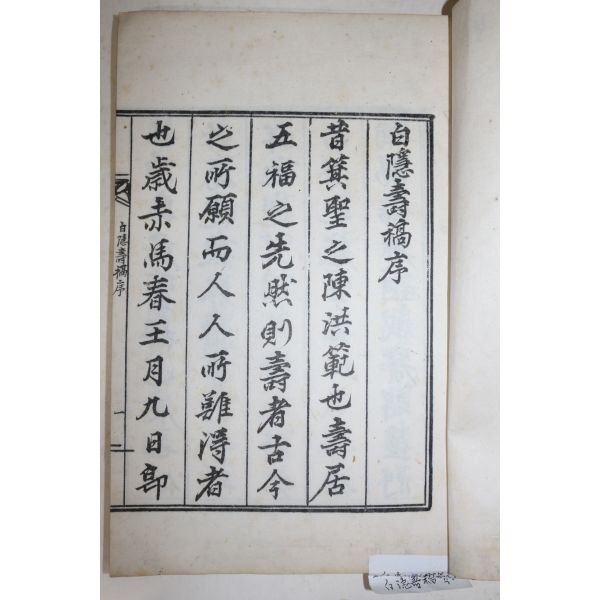 白隱壽稿序
昔箕聖之陳洪範也壽居
五福之先然則壽者古今
之所願而人人所難得者
也歲赤馬春王月九日卽
白隱壽稿序
一
白隱壽稿